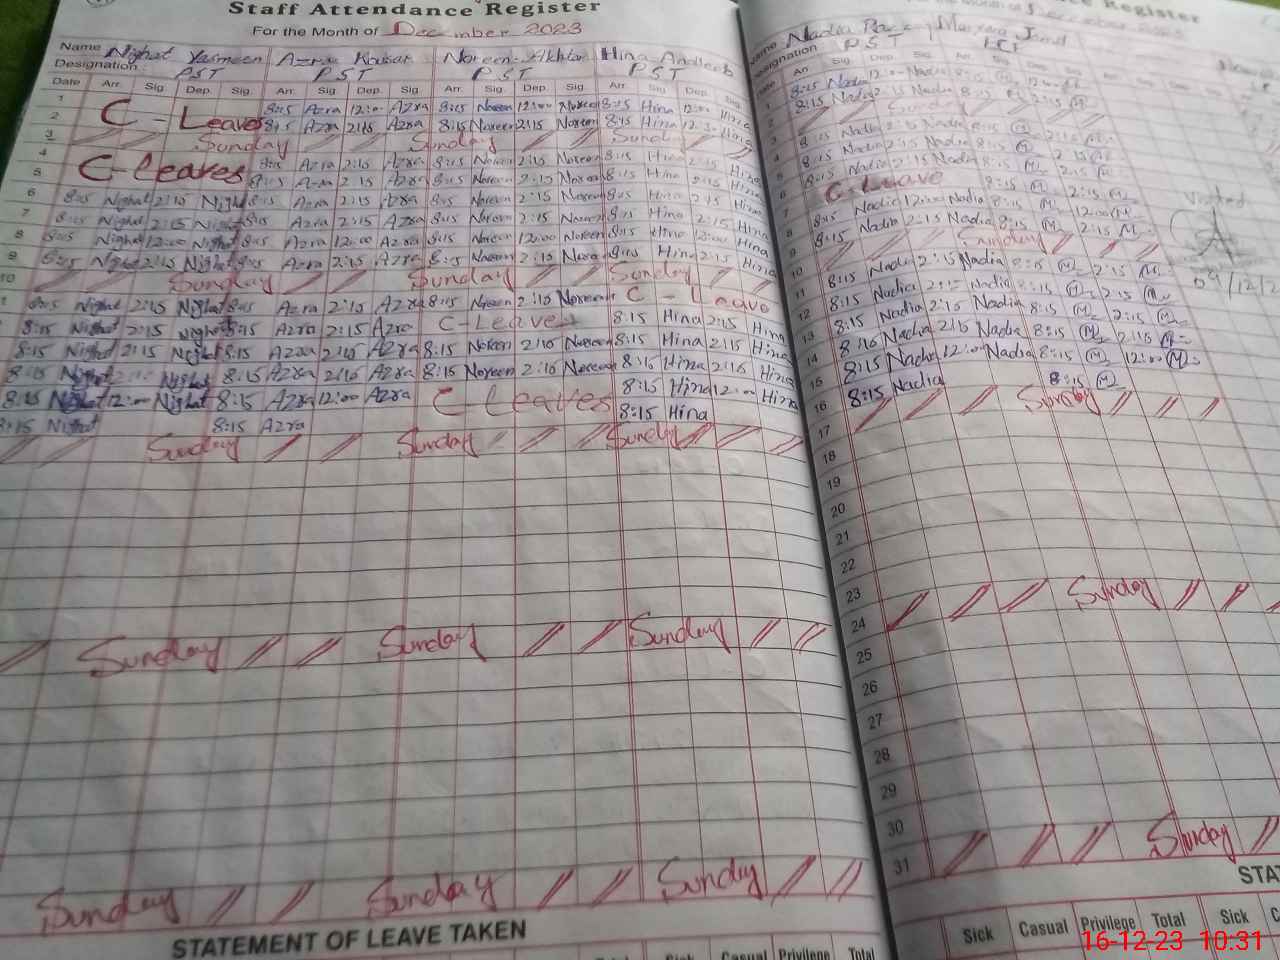 Staff Attendance Register
For the Month of December 2023
Name Nighat Yasmeen Azra Noreen Akhtar Hina Andleeb
Designation PST PST PST PST
Date Arr. Sig. Dep. Sig. Arr. Sig. Dep. Sig. Arr. Sig. Dep. Sig. Arr. Sig. Dep. Sig.
1 C - Leaves 8:15 Azra 12:00 Azra 8:15 Noreen 12:00 Noreen 8:15 Hina 12:00 Hina
2 8:15 Azra 2:15 Azra 8:15 Noreen 2:15 Noreen 8:15 Hina Hina
3 Sunday Sunday Sunday
4 C-Leaves 8:15 Azra 2:15 Azra 8:15 Noreen 2:15 Noreen 8:15 Hina 2:15 Hina
5 8:15 Azra 2:15 Azra 8:15 Noreen 2:15 Noreen 8:15 Hina 2:15 Hina
6 8:15 Nighat 2:15 Nighat 8:15 Azra 2:15 Azra 8:15 Noreen 2:15 Noreen 8:15 Hina 2:15 Hina
7 8:15 Nighat 2:15 Nighat 8:15 Azra 2:15 Azra 8:15 Noreen 2:15 Noreen 8:15 Hina 2:15 Hina
8 8:15 Nighat 12:00 Nighat 8:15 Azra 12:00 Azra 8:15 Noreen 12:00 Noreen 8:15 Hina 12:00 Hina
9 8:15 Nighat 2:15 Nighat 8:15 Azra 2:15 Azra 8:15 Noreen 2:15 Noreen 8:15 Hina 2:15 Hina
10 Sunday Sunday Sunday
8:15 Nighat 2:15 Nighat 8:15 Azra 2:15 Azra 8:15 Noreen 2:15 Noreen C - Leave
8:15 Nighat 2:15 Nighat 8:15 Azra 2:15 Azra C-Leave 8:15 Hina 2:15 Hina
8:15 Nighat 2:15 Nighat 8:15 Azra 2:15 Azra 8:15 Noreen 2:15 Noreen 8:15 Hina 2:15 Hina
8:15 Nighat Nighat 8:15 Azra 2:15 Azra 8:15 Noreen 2:15 Noreen 8:15 Hina 2:15 Hina
8:15 Nighat 12:00 Nighat 8:15 Azra 12:00 Azra C-Leaves 8:15 Hina 12:00 Hina
8:15 Nighat 8:15 Azra 8:15 Hina
Sunday Sunday Sunday
Sunday Sunday Sunday
Sunday Sunday Sunday
STATEMENT OF LEAVE TAKEN
Casual Privilege Total
Register
December
Name Nadia
Designation PST
Arr. Sig. Dep. Sig.
1 8:15 Nadia 12:00 Nadia 8:15
2 8:15 Nadia 2:15 Nadia 8:15
3 Sunday
4 8:15 Nadia 2:15 Nadia 8:15 2:15
5 8:15 Nadia 2:15 Nadia 8:15 2:15
6 8:15 Nadia 2:15 Nadia 8:15 2:15
7 C-Leave 8:15 2:15
8 8:15 Nadia 12:00 Nadia 8:15 12:00
9 8:15 Nadia 2:15 Nadia 8:15 2:15
10 Sunday
11 8:15 Nadia 2:15 Nadia 8:15 2:15
12 8:15 Nadia 2:15 Nadia 8:15 2:15
13 8:15 Nadia 2:15 Nadia 8:15 2:15
14 8:15 Nadia 2:15 Nadia 8:15 2:15
15 8:15 Nadia 12:00 Nadia 8:15 12:00
16 8:15 Nadia 8:15
17 Sunday
18
19
20
21
22
23
24 Sunday
25
26
27
28
29
30
31 Sunday
Visited
STA
Sick Casual Privilege Total Sick
16-12-23 10:31